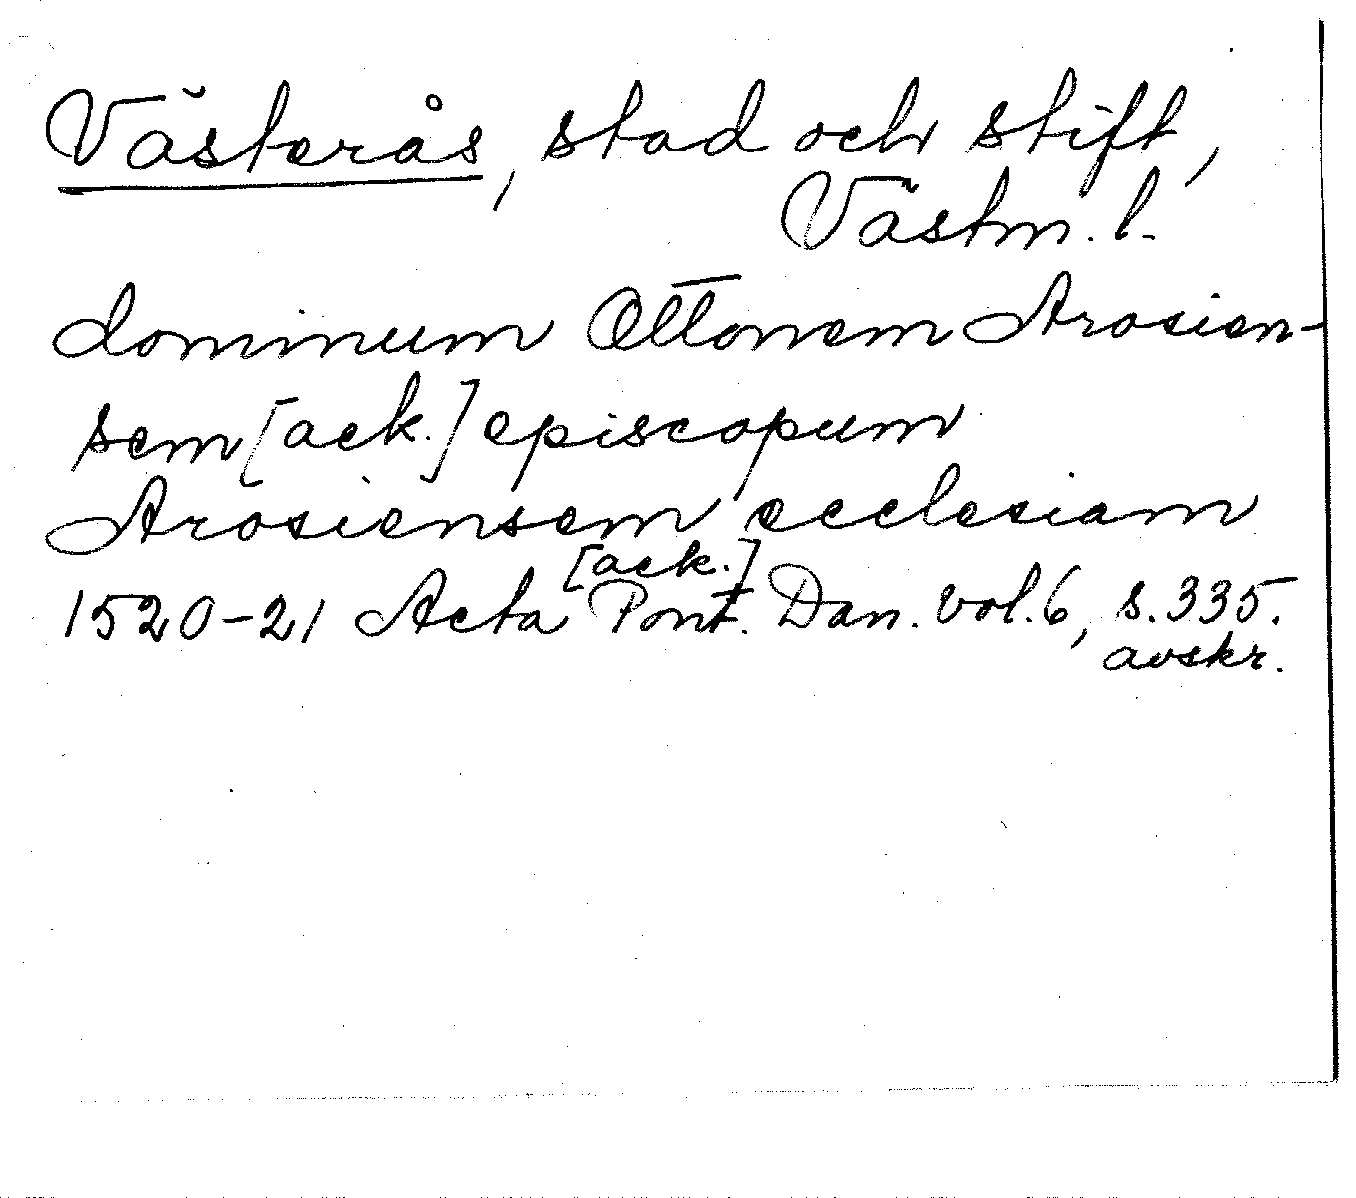 Västerås, stad och stift,
Västm. l.
dominum Ottonem Arosien-
sem [ack.] episcopum
Arosiensem ecclesiam
[ack.]
1520-21 Acta Pont. Dan. vol. 6, s. 335.
avskr.